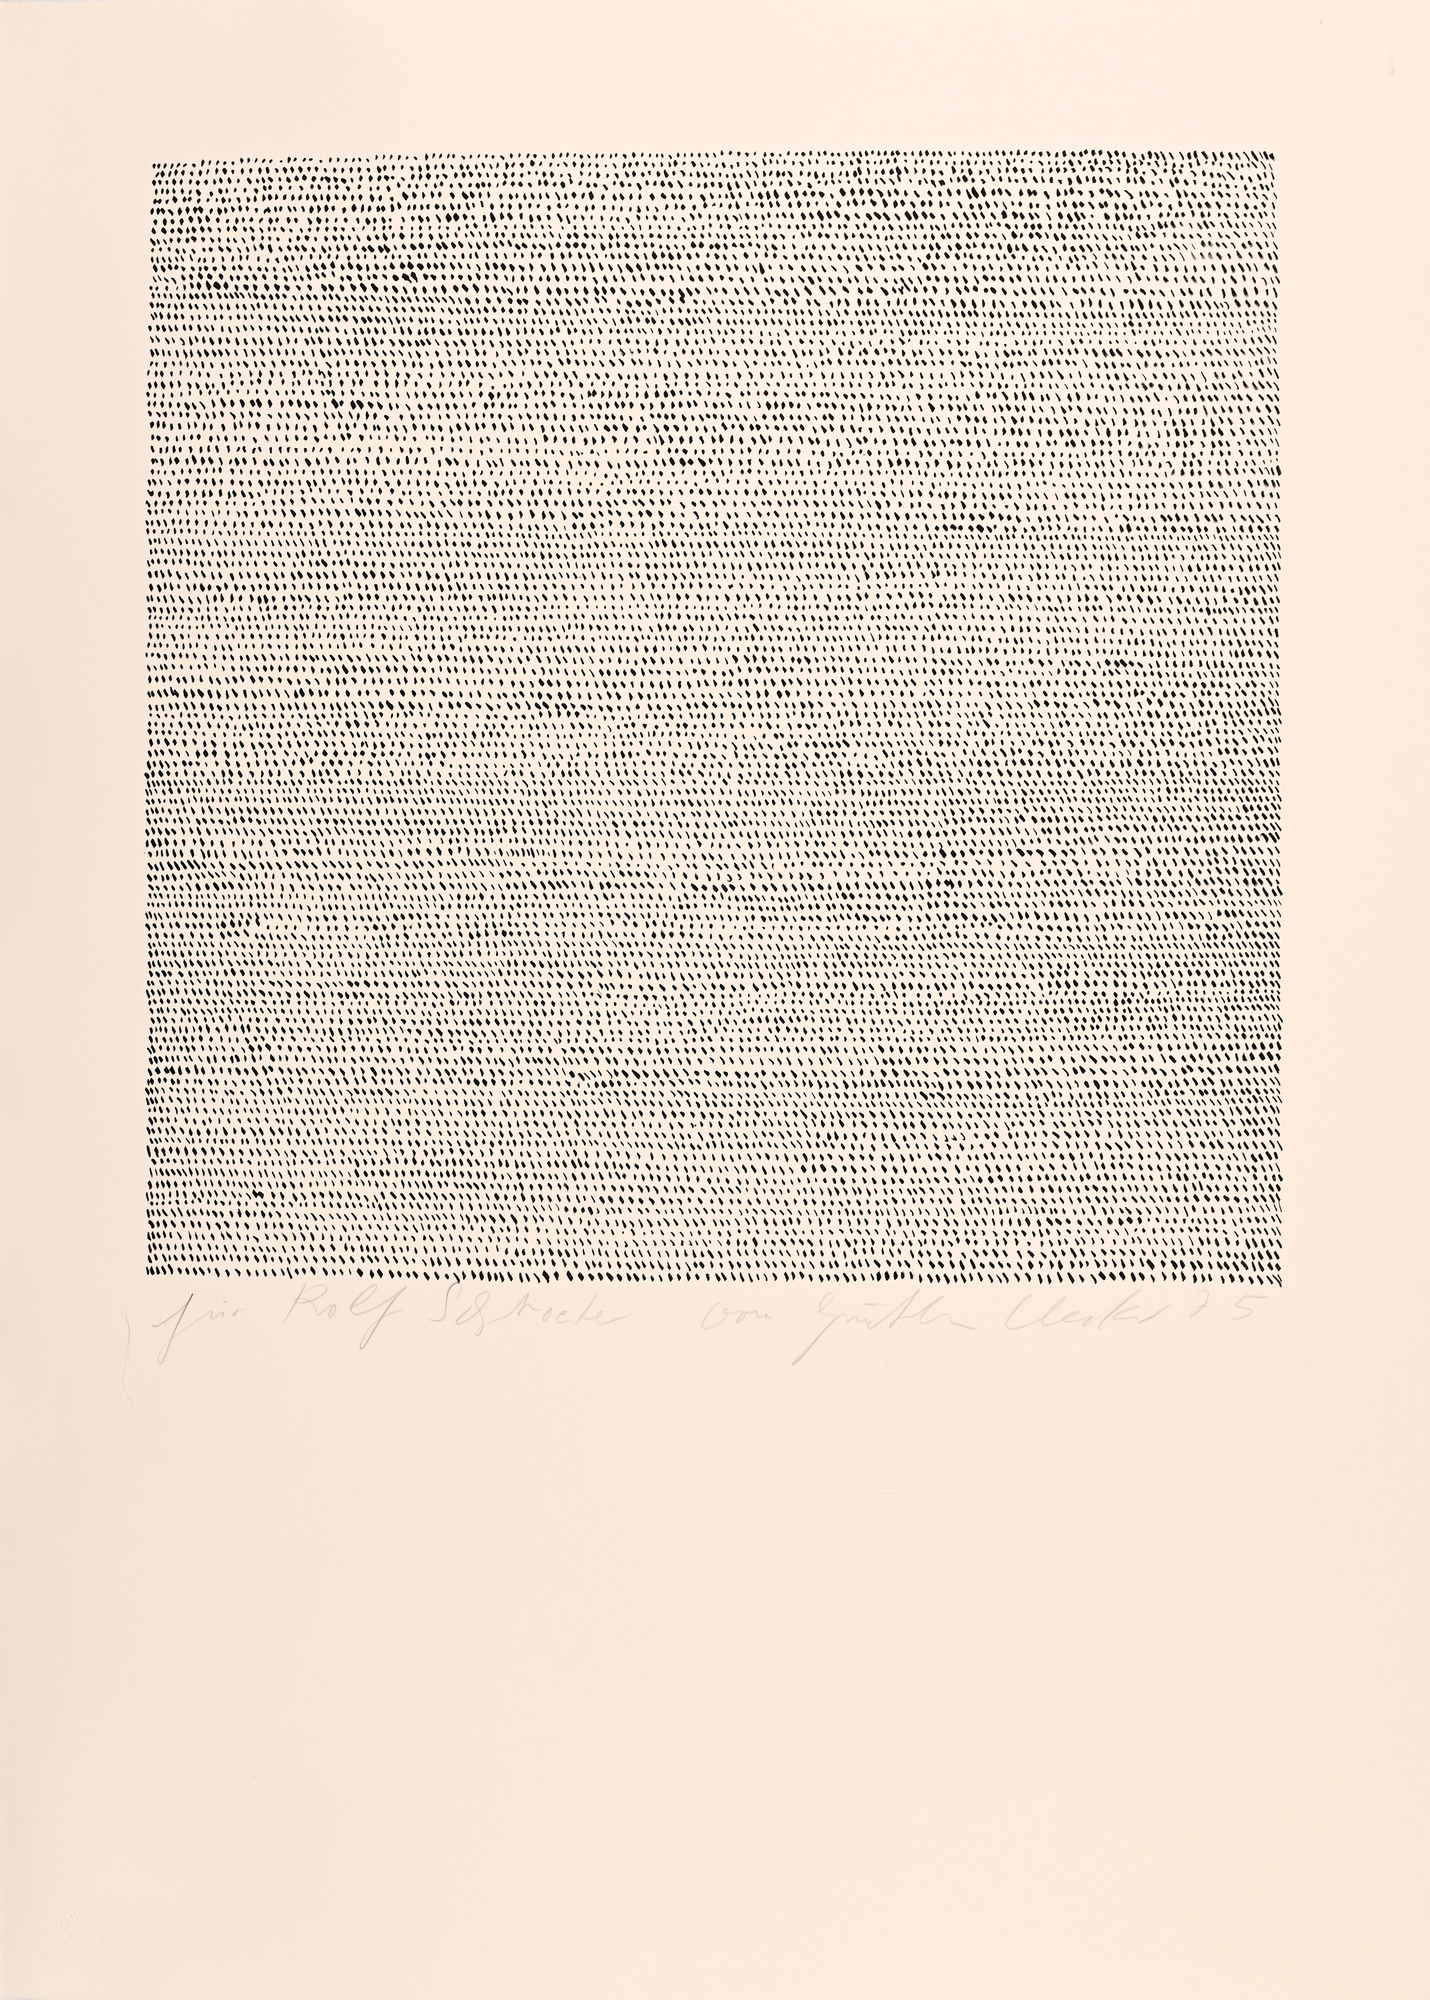 für Rolf Schroeter von Günther Uecker 75